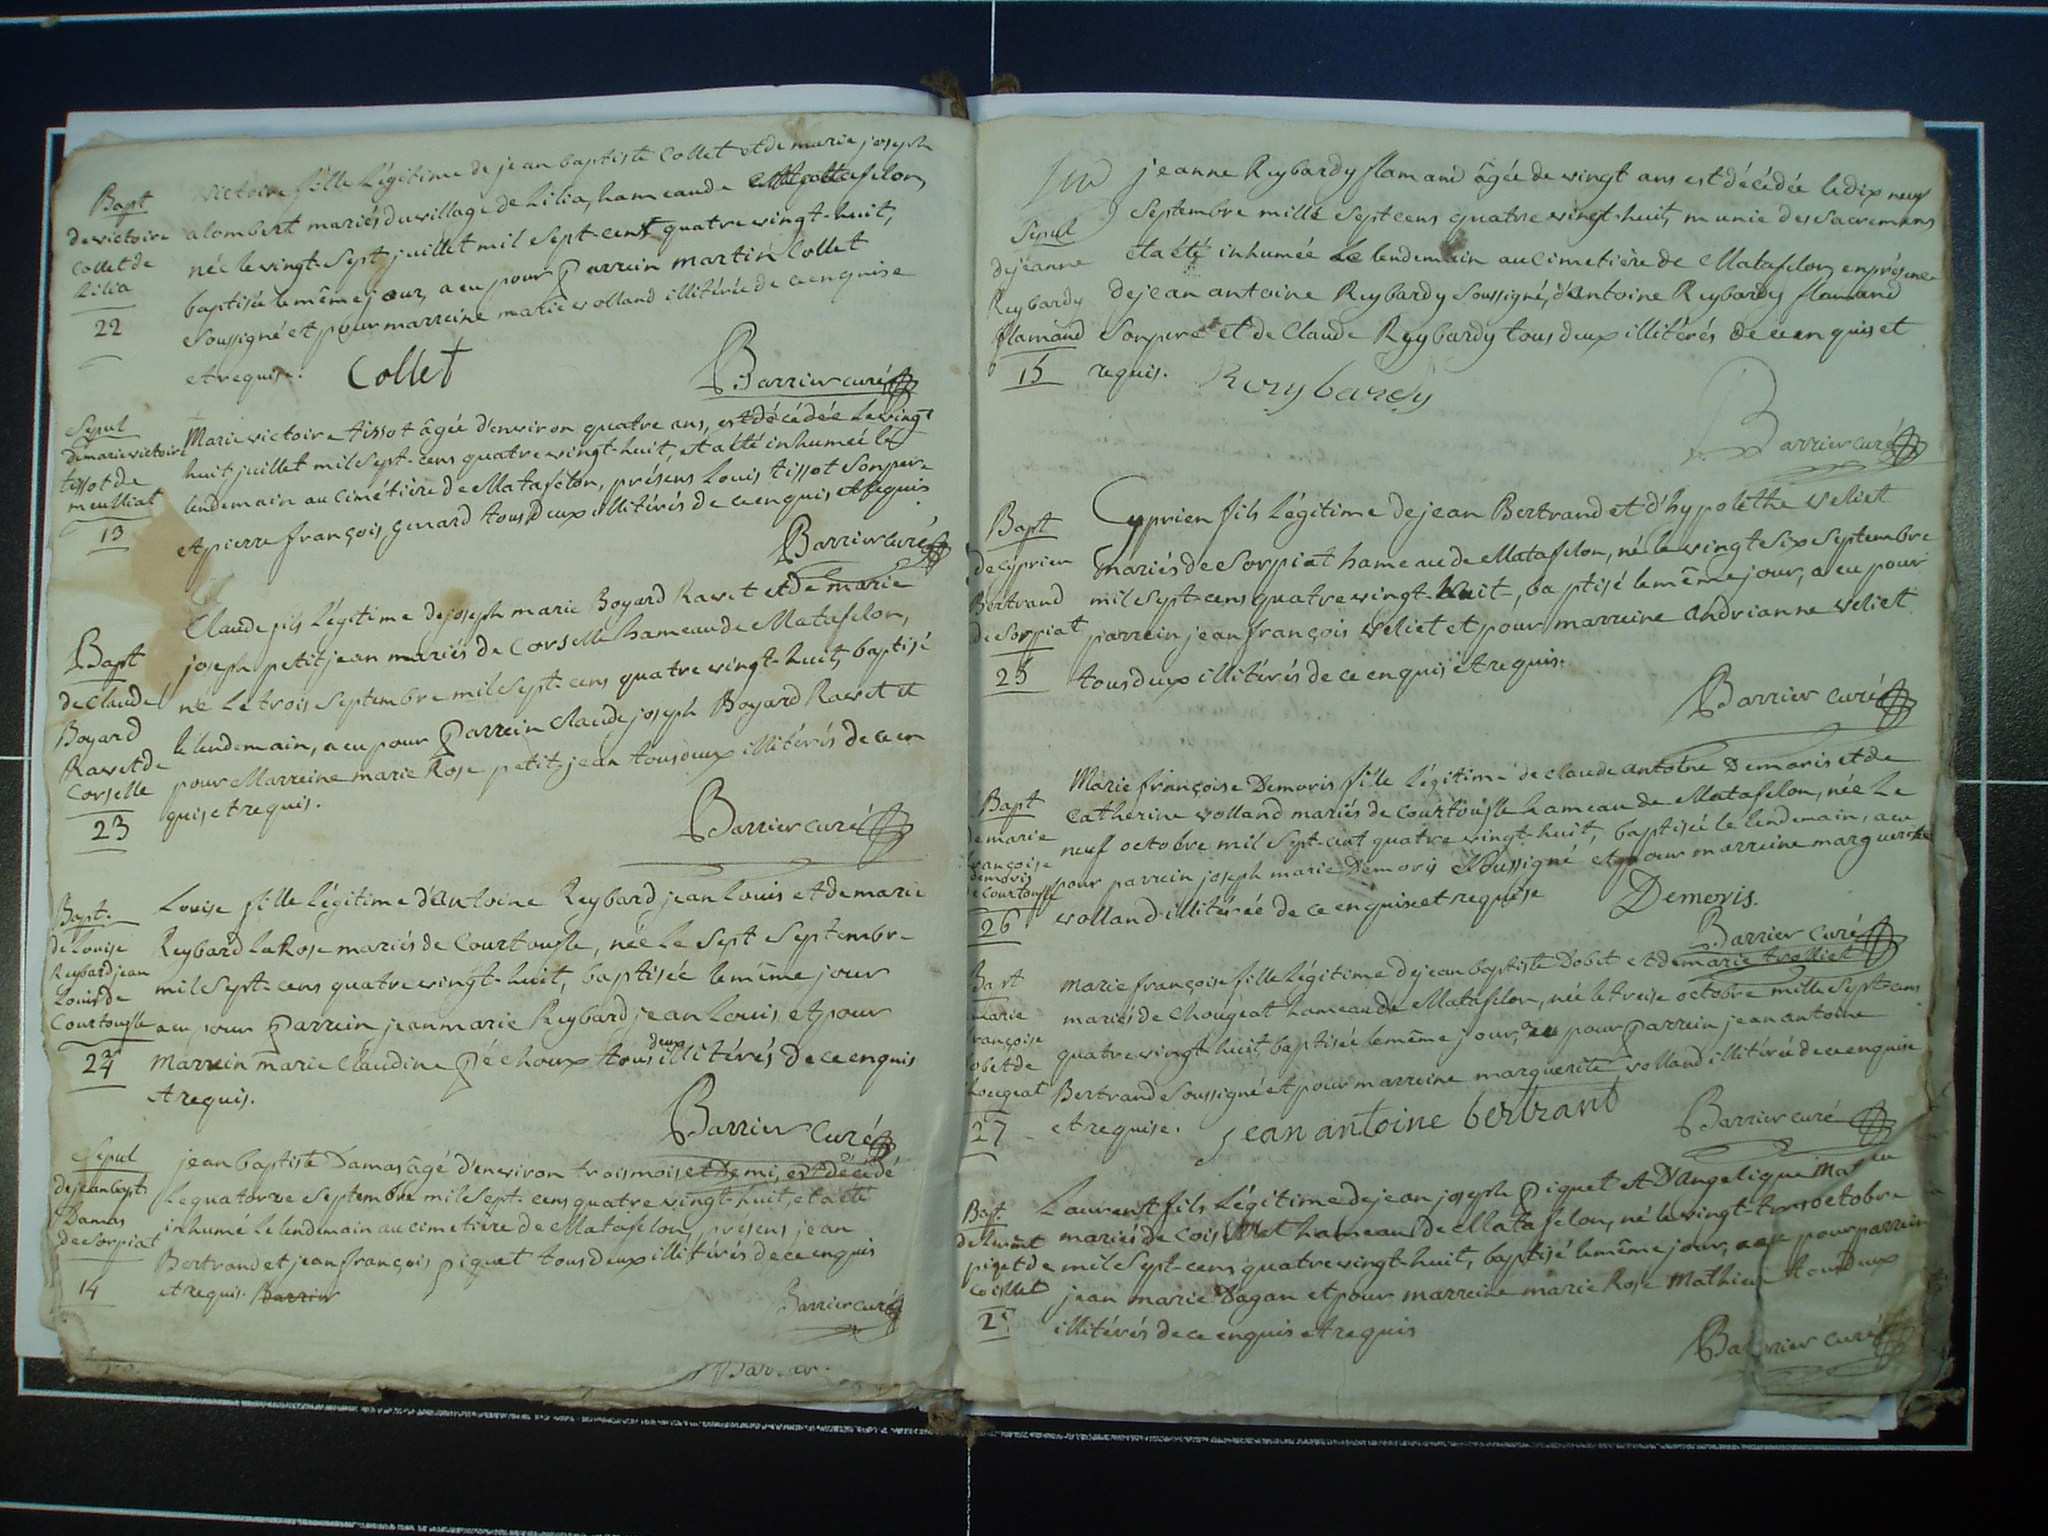 Bapt
de victoire
Collet de
Lilia
22
victoire fille légitime de jean baptiste Collet et de marie joseph
alombert mariés du village de Lilia, hameau de Matafelon,
née le vingt-sept juillet mil sept-cent quatre vingt-huit,
baptisée le même jour, a eu pour parrein martin Collet
soussigné et pour marreine marie volland illitérée de ce enquise
et requise. Collet
Barrier curé
Sepul
de marie victoire
tissot de
meulliat
13
Marie victoire tissot âgée d'environ quatre ans, est décédée le vingt
huit juillet mil sept-cens quatre vingt-huit, et a été inhumée le
lendemain au cimétière de Matafelon, présens Louis tissot son pere
et pierre françois genard tous deux illitérés de ce enquis et requis
Barrier curé
Bapt
de Claude
Boyard
Ravet de
Corselle
23
Claude fils légitime de joseph marie Boyard Ravet et de marie
joseph petitjean mariés de Corselle hameau de Matafelon,
né le trois septembre mil sept-cens quatre vingt-huit, baptisé
le lendemain, a eu pour parrein Claude joseph Boyard Ravet et
pour Marreine marie Rose petit-jean tous deux illitérés de ce en
quis et requis.
Barrier curé
Bapt.
de Louise
Reybard jean
Louis de
Courtousle
24
Louise fille légitime d'Antoine Reybard jean Louis et de marie
Reybard LaRose mariés de Courtousle, née le sept septembre
mil sept-cens quatre vingt-huit, baptisée le même jour
a eu pour parrein jean marie Reybard jean Louis et pour
marrein marie Claudine Péchoux tous deux illitérés de ce enquis
et requis.
Barrier curé
Sepul
de jean bapt.
Damas
de Sorpiat
14
jean baptiste Damas âgé d'environ trois mois et demi, est décédé
le quatorze septembre mil sept-cens quatre vingt-huit, et a été
inhumé le lendemain au cimetière de Matafelon, présens jean
Bertrand et jean françois piquet tous deux illitérés de ce enquis
et requis. Barrier
Barrier curé
Barrier.
Sepul
de jeanne
Reybardy
flamand
15
jeanne Reybardy flamand âgée de vingt ans est décédée le dix neuf
septembre mille sept cens quatre vingt-huit, munie des sacremens
et a été inhumée le lendemain au cimetière de Matafelon, en présence
de jean antoine Reybardy soussigné, d'Antoine Reybardy flamand
son pere et de Claude Reybardy tous deux illitérés de ce enquis et
requis. Reybardy
Barrier curé
Bapt
de Cyprien
Bertrand
de Sorpiat
25
Cyprien fils légitime de jean Bertrand et d'hypolethe veliet
mariés de Sorpiat hameau de Matafelon, né le vingt six septembre
mil sept-cens quatre vingt-huit, baptisé le même jour, a eu pour
parrein jean françois veliet et pour marreine andrianne veliet
tous deux illitérés de ce enquis et requis.
Barrier curé
Bapt
de marie
françoise
Demoris
de Courtousle
26
Marie françoise Demoris fille légitime de Claude antoine Demoris et de
Catherine volland mariés de Courtousle hameau de Matafelon, née le
neuf octobre mil sept-cent quatre vingt-huit, baptisée le lendemain, a eu
pour parrein joseph marie Demoris soussigné et pour marreine marguerite
volland illitérée de ce enquise et requise Demoris.
Barrier curé
Bapt
marie
françoise
obet de
Chougeat
27
marie françoise fille légitime de jean baptiste Dobet et de marie trolliet
mariés de Chougeat hameau de Matafelon, née le treise octobre mille sept-cens
quatre vingt-huit, baptisée le même jour, a eu pour parrein jean antoine
Bertrand soussigné et pour marreine marguerite volland illitérée de ce enquise
et requise. jean antoine bertrant
Barrier curé
Bapt
de Laurent
piquet de
Coisllet
Laurent fils légitime de jean joseph piquet et D'Angelique
mariés de hameau de Matafelon, né le vingt-trois octobre
mil sept-cens quatre vingt-huit, baptisé le même jour, a eu pour parrein
jean marie Dagan et pour marreine marie Rose Mathieu tous deux
illitérés de ce enquis et requis
Barrier curé